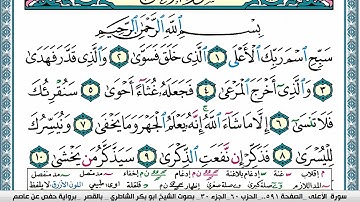 بِسْمِ اللَّهِ الرَّحْمَٰنِ الرَّحِيمِ
سَبِّحِ اسْمَ رَبِّكَ الْأَعْلَى ١ الَّذِي خَلَقَ فَسَوَّىٰ ٢ وَالَّذِي قَدَّرَ فَهَدَىٰ
٣ وَالَّذِي أَخْرَجَ الْمَرْعَىٰ ٤ فَجَعَلَهُ غُثَاءً أَحْوَىٰ ٥ سَنُقْرِئُكَ
فَلَا تَنسَىٰ ٦ إِلَّا مَا شَاءَ اللَّهُ إِنَّهُ يَعْلَمُ الْجَهْرَ وَمَا يَخْفَىٰ ٧ وَنُيَسِّرُكَ
لِلْيُسْرَىٰ ٨ فَذَكِّرْ إِن نَّفَعَتِ الذِّكْرَىٰ ٩ سَيَذَّكَّرُ مَن يَخْشَىٰ ١٠
سورة الأعلى، الصفحة ٥٩١، الحزب ٦٠ الجزء ٣٠ بصوت الشيخ أبو بكر الشاطري بالقصر برواية حفص عن عاصم